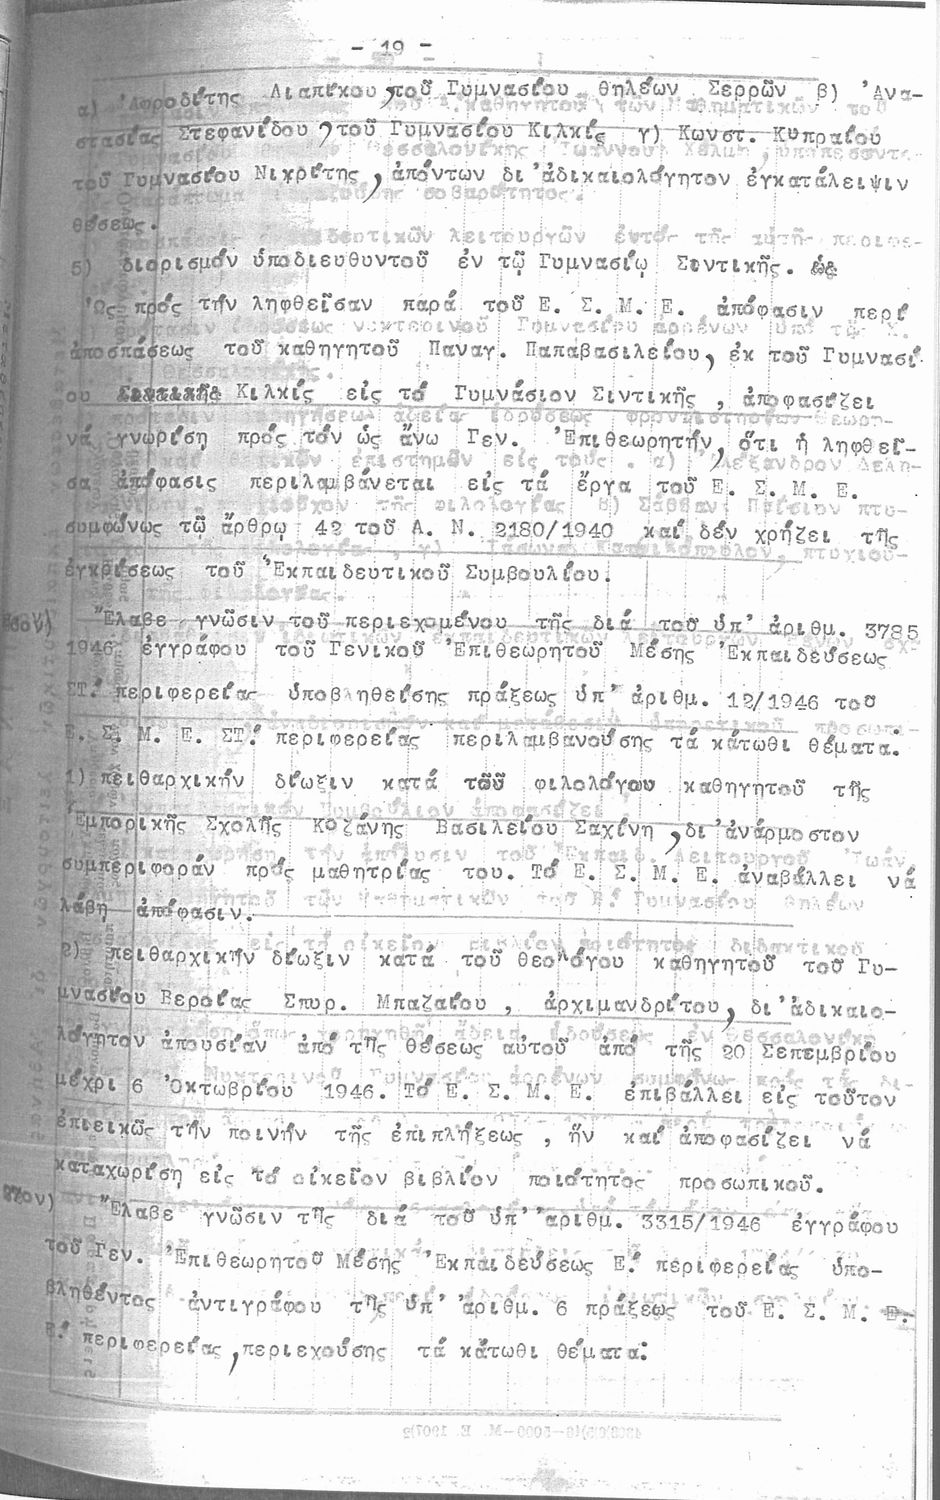 - 19 -
α) Ἀφροδίτης Λιαπίκου, τοῦ Γυμνασίου θηλέων Σερρῶν β) Ἀνα-
στασίας Στεφανίδου, τοῦ Γυμνασίου Κιλκίς γ) Κωνστ. Κυπραίου
τοῦ Γυμνασίου Νιγρίτης, ἀπόντων δι' ἀδικαιολόγητον ἐγκατάλειψιν
θέσεως.
5) διορισμόν ὑποδιευθυντοῦ ἐν τῷ Γυμνασίῳ Σιντικῆς.
Ὡς πρός τήν ληφθεῖσαν παρά τοῦ Ε. Σ. Μ. Ε. ἀπόφασιν περί
ἀποσπάσεως τοῦ καθηγητοῦ Παναγ. Παπαβασιλείου, ἐκ τοῦ Γυμνασί
ου Κιλκίς εἰς τό Γυμνάσιον Σιντικῆς, ἀποφασίζει
νά γνωρίσῃ πρός τόν ὡς ἄνω Γεν. Ἐπιθεωρητήν, ὅτι ἡ ληφθεῖ-
σα ἀπόφασις περιλαμβάνεται εἰς τά ἔργα τοῦ Ε. Σ. Μ. Ε.
συμφώνως τῷ ἄρθρῳ 42 τοῦ Α. Ν. 2180/1940 καί δέν χρήζει τῆς
ἐγκρίσεως τοῦ Ἐκπαιδευτικοῦ Συμβουλίου.
Ἔλαβε γνῶσιν τοῦ περιεχομένου τῆς διά τοῦ ὑπ' ἀριθμ. 3785
1946 ἐγγράφου τοῦ Γενικοῦ Ἐπιθεωρητοῦ Μέσης Ἐκπαιδεύσεως
ΣΤ' περιφερείας ὑποβληθείσης πράξεως ὑπ' ἀριθμ. 12/1946 τοῦ
Ε. Σ. Μ. Ε. ΣΤ' περιφερείας περιλαμβανούσης τά κάτωθι θέματα:
1) πειθαρχικήν δίωξιν κατά τοῦ φιλολόγου καθηγητοῦ τῆς
Ἐμπορικῆς Σχολῆς Κοζάνης Βασιλείου Σαχίνη, δι' ἀνάρμοστον
συμπεριφοράν πρός μαθητρίας του. Τό Ε. Σ. Μ. Ε. ἀναβάλλει νά
λάβῃ ἀπόφασιν.
2) πειθαρχικήν δίωξιν κατά τοῦ θεολόγου καθηγητοῦ τοῦ Γυ-
μνασίου Βεροίας Σπυρ. Μπαζαίου, ἀρχιμανδρίτου, δι' ἀδικαιο-
λόγητον ἀπουσίαν ἀπό τῆς θέσεως αὐτοῦ ἀπό τῆς 20 Σεπτεμβρίου
μέχρι 6 Ὀκτωβρίου 1946. Τό Ε. Σ. Μ. Ε. ἐπιβάλλει εἰς τοῦτον
ἐπιεικῶς τήν ποινήν τῆς ἐπιπλήξεως, ἥν καί ἀποφασίζει νά
καταχωρίσῃ εἰς τό οἰκεῖον βιβλίον ποιότητος προσωπικοῦ.
87ον) Ἔλαβε γνῶσιν τῆς διά τοῦ ὑπ' ἀριθμ. 3315/1946 ἐγγράφου
τοῦ Γεν. Ἐπιθεωρητοῦ Μέσης Ἐκπαιδεύσεως Ε' περιφερείας ὑπο-
βληθέντος ἀντιγράφου τῆς ὑπ' ἀριθμ. 6 πράξεως τοῦ Ε. Σ. Μ. Ε.
Ε' περιφερείας, περιεχούσης τά κάτωθι θέματα: